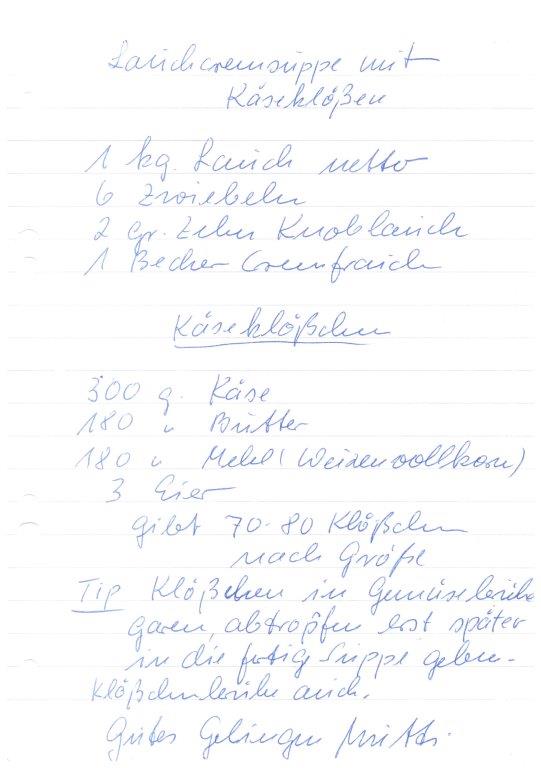 Lauchcremsuppe mit
Käseklößen
1 kg. Lauch netto
6 Zwiebeln
2 gr. Zehn Knoblauch
1 Becher Cremfraich
Käseklößchen
300 g. Käse
180 " Butter
180 " Mehl (Weizenvollkorn)
3 Eier
gibt 70-80 Klößchen
nach Größe
Tip Klößchen in Gemüsebrühe
garen, abtropfen erst später
in die fertig Suppe geben-
Klößchenbrühe auch.
Gutes Gelingen Mutti.